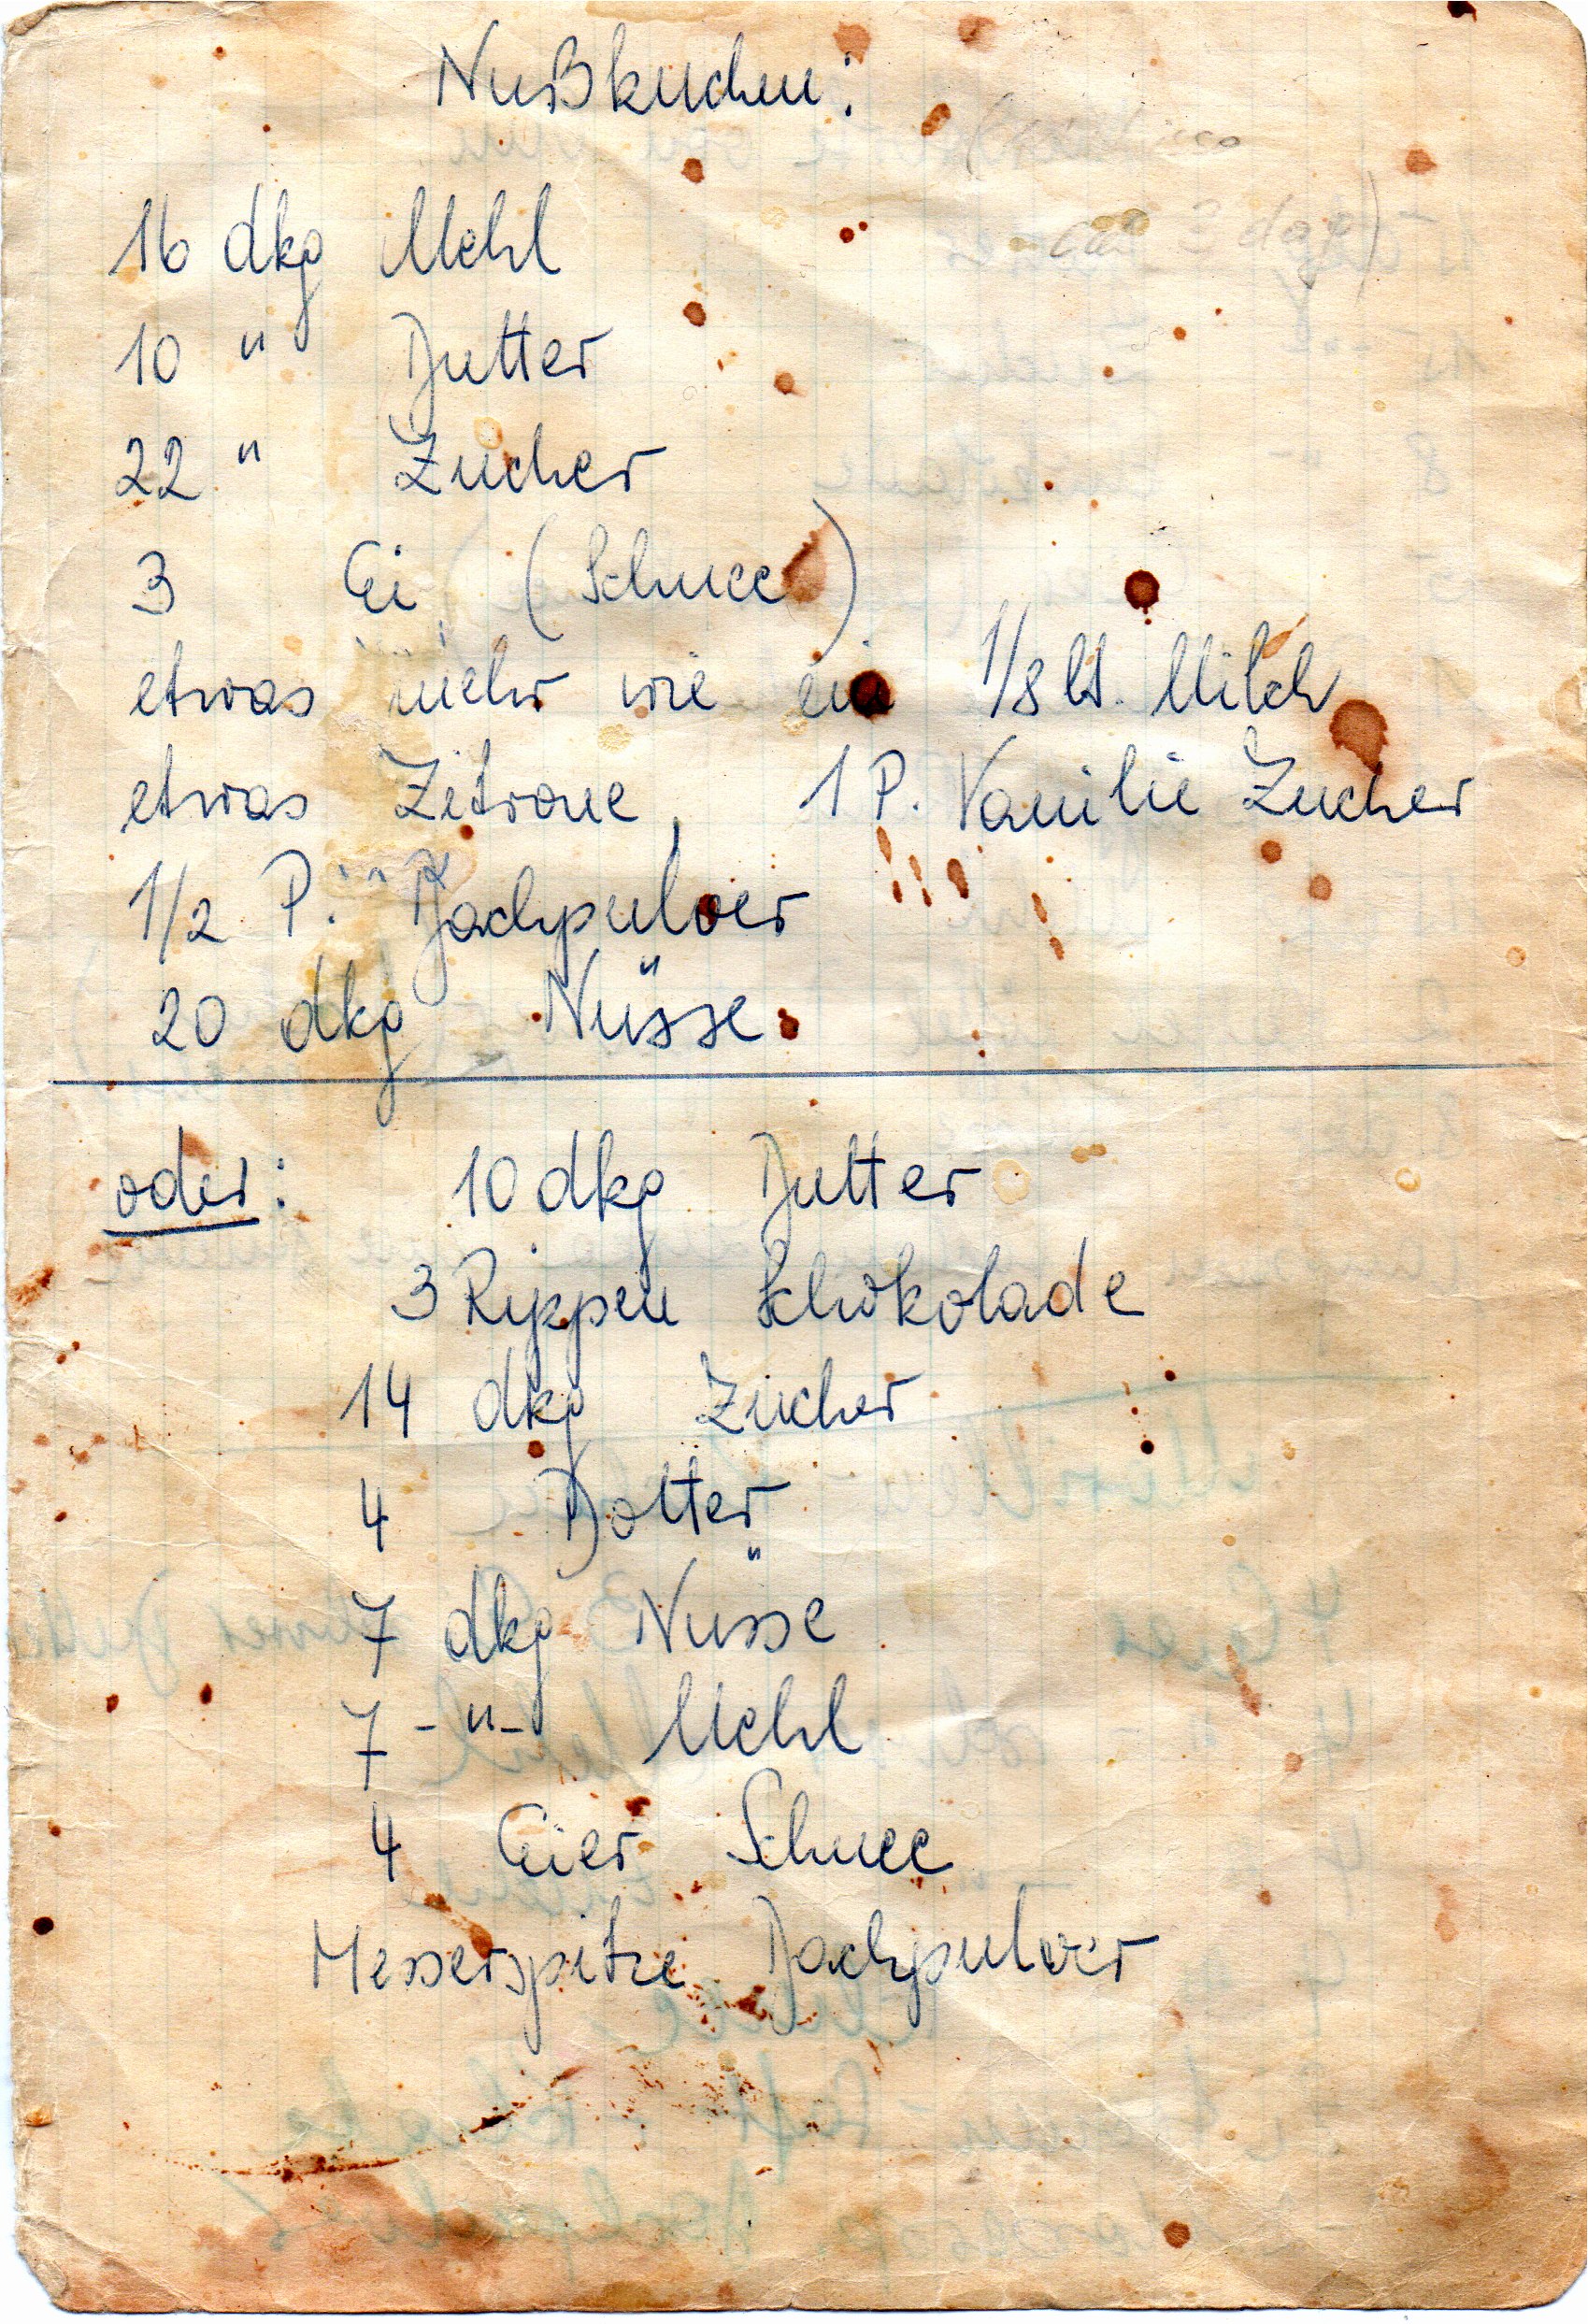 Nußkuchen:
16 dkg Mehl
10 " Butter
22 " Zucker
3 Ei (Schnee)
etwas mehr wie ein 1/8 lt. Milch
etwas Zitrone, 1 P. Vanilie Zucker
1/2 P. Backpulver
20 dkg Nüsse
oder: 10 dkg Butter
3 Rippen Schokolade
14 dkg Zucker
4 Dotter
7 dkg Nüsse
7 -"- Mehl
4 Eier Schnee
Messerspitze Backpulver